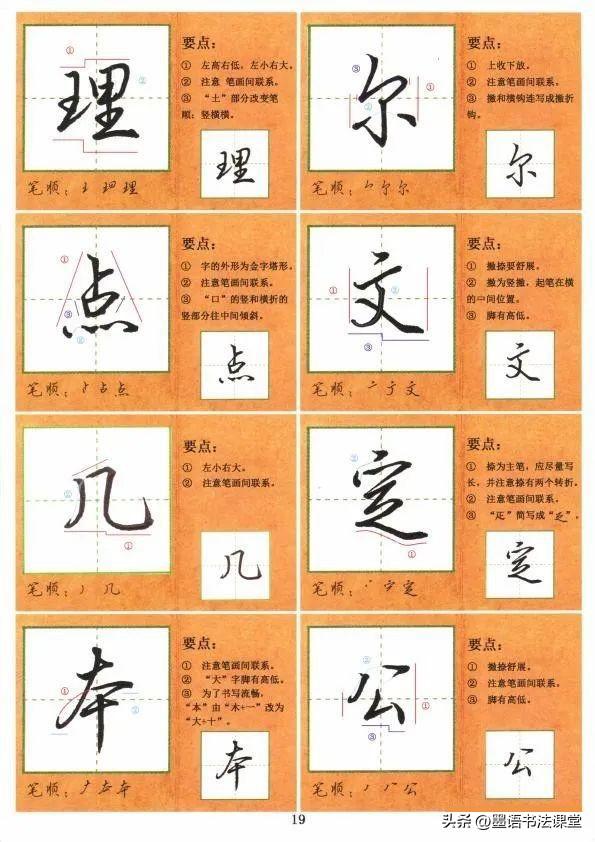 理
要点：
① 左高右低，左小右大。
② 注意 笔画间联系。
③ “土”部分改变笔
顺：竖横横。
理
笔顺：王 玾 理
尔
要点：
① 上收下放。
② 注意笔画间联系。
③ 撇和横钩连写成撇折
钩。
尔
笔顺：𠂊 尔 尔
点
要点：
① 字的外形为金字塔形。
② 注意笔画间联系。
③ “口”的竖和横折的
竖部分往中间倾斜。
点
笔顺：⺊ 占 点
文
要点：
① 撇捺要舒展。
② 撇为竖撇，起笔在横
的中间位置。
③ 脚有高低。
文
笔顺：亠 ナ 文
几
要点：
① 左小右大。
② 注意笔画间联系。
几
笔顺：丿 几
定
要点：
① 捺为主笔，应尽量写
长，并注意捺有两个转折。
② 注意笔画间联系。
③ “疋”简写成“㐟”。
定
笔顺：丶 宀 定
本
要点：
① 注意笔画间联系。
② “大”字脚有高低。
③ 为了书写流畅，
“本”由“木+一”改为
“大+十”。
本
笔顺：ナ 夲 本
公
要点：
① 撇捺舒展。
② 注意笔画间联系。
③ 脚有高低。
公
笔顺：丿 八 公
19
头条 @墨语书法课堂